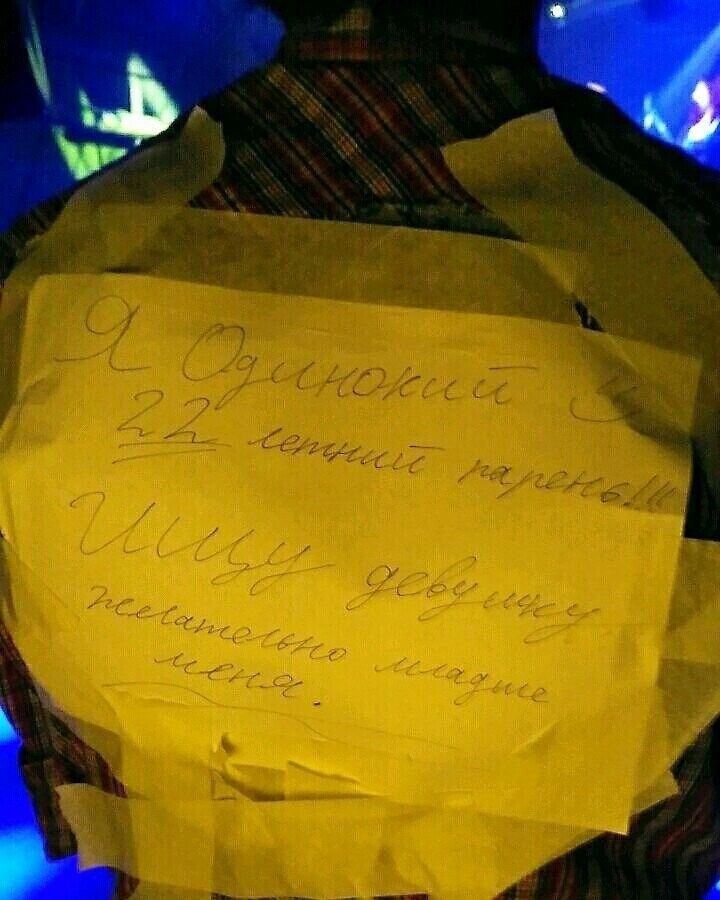 Я Одинокий
22 летний парень!!!!
Ищу девушку
желательно младше
меня.